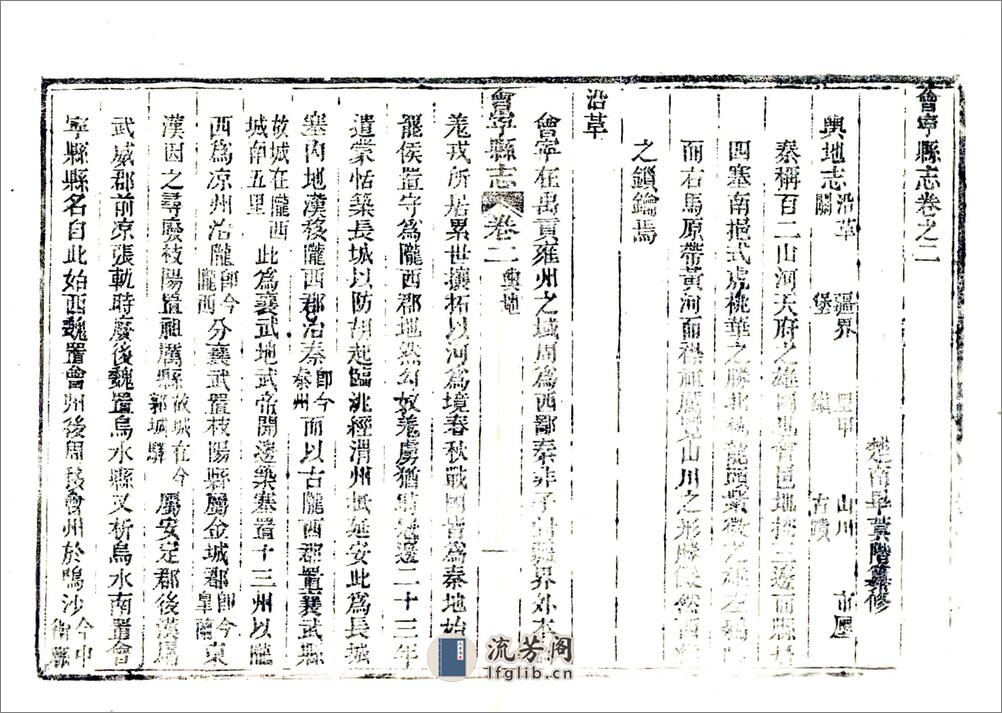 會寧縣志卷之二
楚南畢蓂階纂修
輿地志 沿革 疆界 里甲 山川 市廛
關 堡 鎮 古蹟
秦稱百二山河天府之雄 會邑地 邊而縣
四塞南挹式虎桃華之勝北 龍頭紫 之雄左
而右馬原帶黃河而襟祖厲 山川之形勝 然西
之鎖鑰焉
沿革
會寧在禹貢雍州之域周為西鄙秦非子 界外本
羌戎所居累世攘拓以河為境春秋戰國皆為秦地始
罷侯置守為隴西郡地然匈奴羌虜猶時 邊二十三年
遣蒙恬築長城以防胡起臨洮經渭州抵延安此為長城
塞內地漢移隴西郡治秦即今秦州而以古隴西郡置襄武縣
故城在隴西城南五里此為襄武地武帝開邊築塞置十三州以隴
西為涼州治隴即今隴西分襄武置枝陽縣屬金城郡即今皋蘭東
漢因之尋廢枝陽置祖厲縣故城在今郭城驛屬安定郡後漢屬
武威郡前涼張軌時廢後魏置烏水縣又析烏水南置會
寧縣縣名自此始西魏置會州後周移會州於鳴沙今中衛縣
會寧縣志 卷二 輿地 一
流芳阁
lfglib.cn